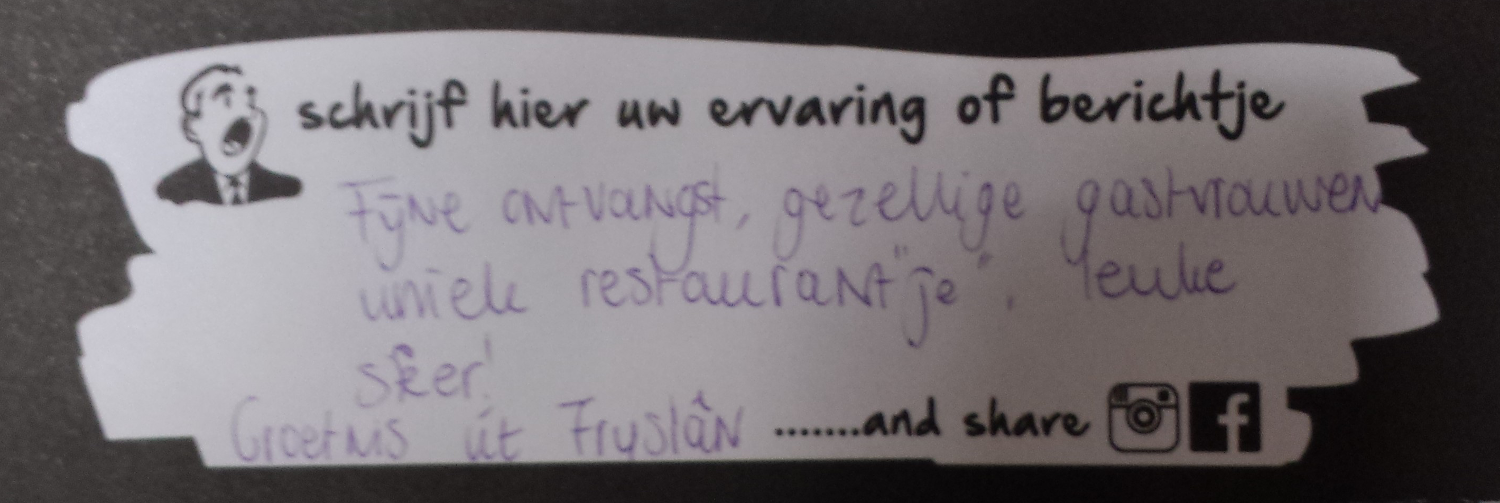 schrijf hier uw ervaring of berichtje
Fijne ontvangst, gezellige gastvrouwen
uniek restaurant "je". leuke
sfeer!
Groetnis út Fryslân .......and share